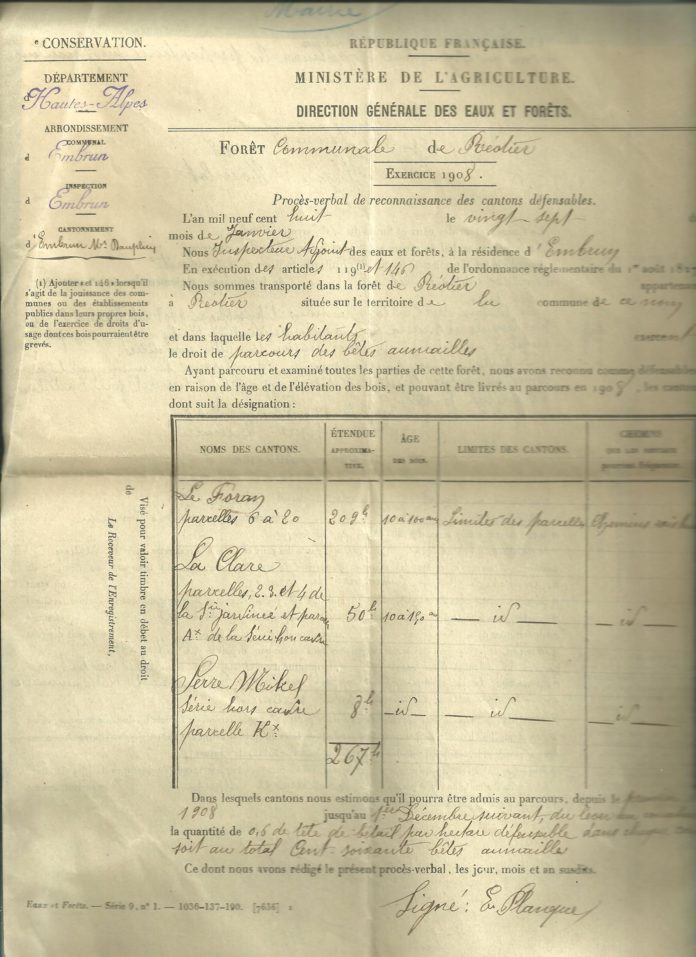 Mairie
CONSERVATION.
DÉPARTEMENT
d Hautes-Alpes
ARRONDISSEMENT
COMMUNAL
d Embrun
INSPECTION
d Embrun
CANTONNEMENT
d'Embrun
(1) Ajouter « et 146 » lorsqu'il
s'agit de la jouissance des com-
munes ou des établissements
publics dans leurs propres bois,
ou de l'exercice de droits d'u-
sage dont ces bois pourraient être
grevés.
RÉPUBLIQUE FRANÇAISE.
MINISTÈRE DE L'AGRICULTURE.
DIRECTION GÉNÉRALE DES EAUX ET FORÊTS.
FORÊT Communale de Réotier
EXERCICE 1908.
Procès-verbal de reconnaissance des cantons défensables.
L'an mil neuf cent huit le vingt-sept
mois de Janvier
Nous Inspecteur Adjoint des eaux et forêts, à la résidence d'Embrun
En exécution des articles 119(1) et 146 de l'ordonnance réglementaire du 1er août 1827
Nous sommes transporté dans la forêt de Réotier
à Réotier située sur le territoire de la commune de ce nom
et dans laquelle les habitants
le droit de parcours des bêtes aumailles
Ayant parcouru et examiné toutes les parties de cette forêt, nous avons reconnu comme défensables
en raison de l'âge et de l'élévation des bois, et pouvant être livrés au parcours en 1908, les cantons
dont suit la désignation :
NOMS DES CANTONS. ÉTENDUE APPROXIMA-TIVE. ÂGE DES BOIS. LIMITES DES CANTONS. CHEMINS
Le Foran
parcelles 6 à 20 209h 10 à 100 ans Limites des parcelles Chemins
La Clare
parcelles, 2. 3. et 4 de
la Sie jardinée et
Ax de la Série hors cadre 50h 10 à 150 ans — id — — id —
Serre Mikel
Série hors cadre 8h — id — — id — — id
parcelle Kx
267h
Dans lesquels cantons nous estimons qu'il pourra être admis au parcours, depuis le
1908 jusqu'au 1er Décembre suivant,
la quantité de 0,6 de tête de bétail par hectare défensable dans chaque
soit au total Cent soixante bêtes aumailles
Ce dont nous avons rédigé le présent procès-verbal, les jour, mois et an susdits.
Signé : E. Planque
Visé pour valoir timbre en débet au droit
de
Le Receveur de l'Enregistrement,
Eaux et Forêts. — Série 9, n° 1. — 1036-137-190. [7636]